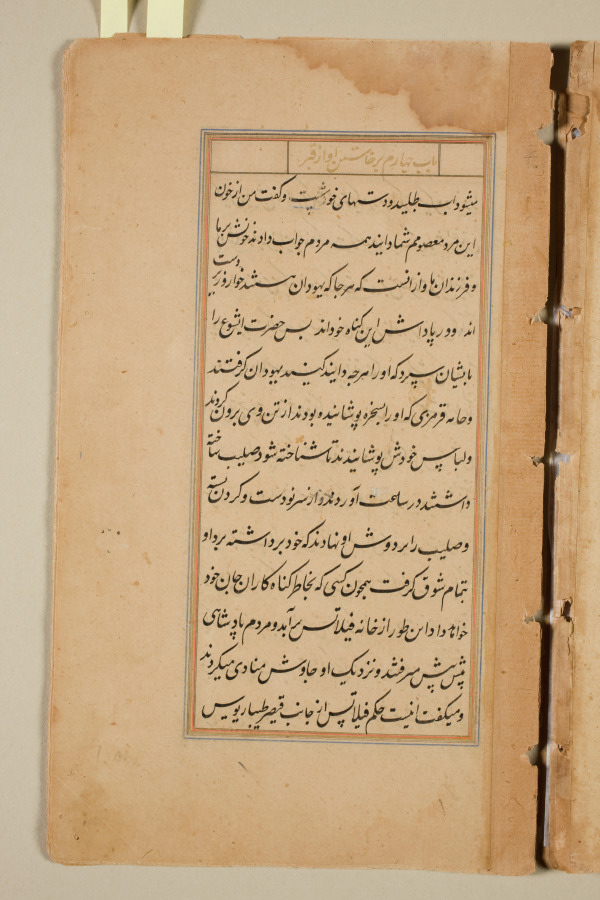 باب چهارم برخاستن او از قبر
میشود اب طلبید و دستهای خود شست و گفت من از خون
این مرد معصومم شما دانید همه مردم جواب دادند خونش بر ما
و فرزندان ما و از انست که هر جا که یهودان هستند خوار و زیر دست
اند و در پاداش این گناه خوداند پس حضرت ایشوع را
بایشان سپرد که او را هرچه دانید کنید یهودان گرفتند
و جامه قرمزی که او را بسخره پوشانیده بودند از تن وی برون کردند
و لباس خودش پوشانیدند تا شناخته شود صلیب ساخته
داشتند در ساعت آوردند و از سر نو دست و گردن بسته
و صلیب را بر دوش او نهادند که خود برداشته برد او
بتمام شوق گرفت همچون کسی که بخاطر گناه کاران جان خود
خواهد داد این طور از خانه فیلاتس برآمد و مردم پادشاهی
پیش پیش میرفتند و نزدیک او جاوش منادی میکردند
و میگفت اینست حکم فیلاتس از جانب قیصر طیباریوس